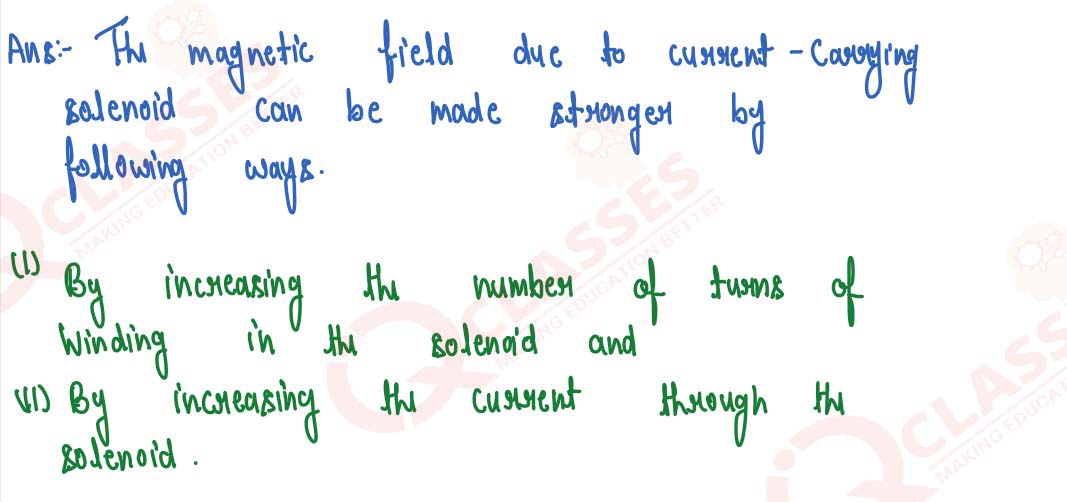 Ans:- The magnetic field due to current-Carrying
solenoid can be made stronger by
following ways.
(I) By increasing the number of turns of
Winding in the solenoid and
(II) By increasing the current through the
solenoid.
CLASSES
MAKING EDUCATION BETTER
CLASSES
MAKING EDUCATION BETTER
CLASS
MAKING EDUCAT